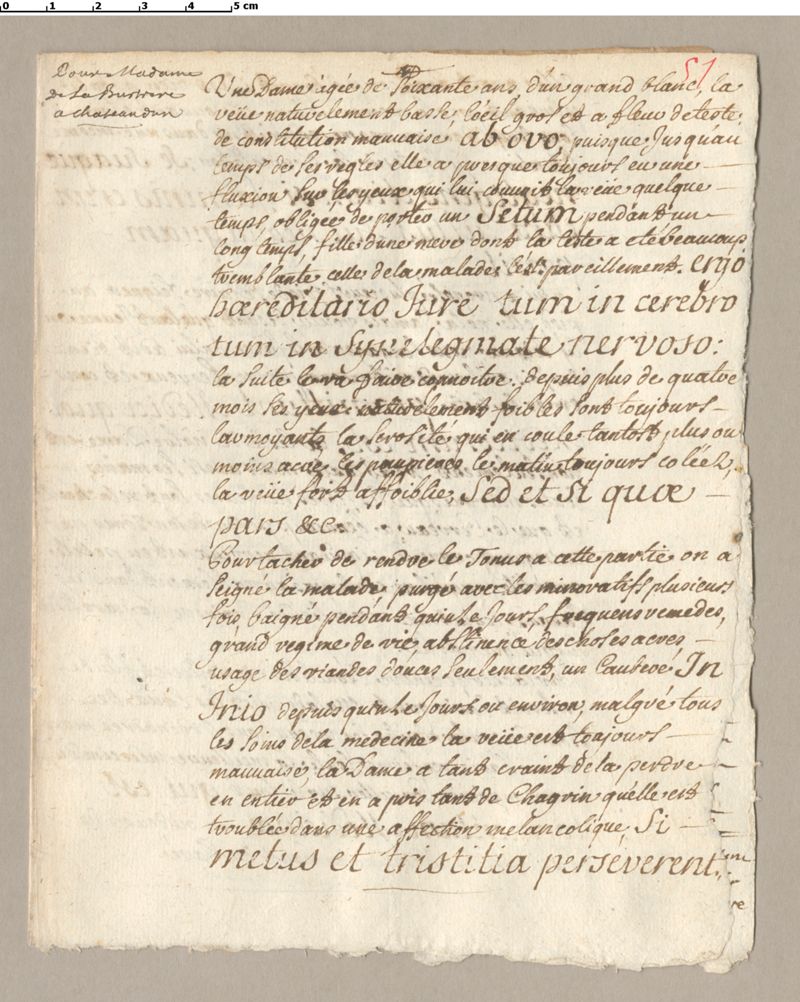 0 1 2 3 4 5 cm
51
Pour Madame
de La Bussiere
a chateaudun
Une Dame agée de soixante ans, d'un grand blanc, la
veüe naturelement basse, l'oeil gros et a fleur de teste,
de constitution mauvaise ab ovo, puisque Jusqu'au
temps de ses regles elle a presque toujours eu une
fluxion sur les yeux qui lui couvrit la veüe quelque
temps, obligée de porter un setum pendant un
long temps, fille d'une mere dont la teste a eté beaucoup
tremblante, celle de la malade l'est pareillement. ergo
hæreditario Jure tum in cerebro
tum in nervoso:
la suite le va faire connoitre. depuis plus de quatre
mois ses yeux naturelement foibles sont toujours
larmoyants la serosité qui en coule tantost plus ou
moins acre, les paupieres le matin toujours colées,
la veüe fort affoiblie, sed et si quæ
pars &c.
Pour tacher de rendre le Tonus a cette partie on a
seigné la malade, purgé avec les minoratifs plusieurs
fois, baigné pendant quinze Jours, frequens remedes,
grand regime de vie, abstinence des choses acres,
usage des viandes douces seulement, un Cautere In
Inio depuis quinze Jours ou environ, malgré tous
les soins de la medecine la veüe est toujours
mauvaise, la Dame a tant craint de la perdre
en entier et en a pris tant de Chagrin quelle est
troublée dans une affection melancolique, si
metus et tristitia perseverent,